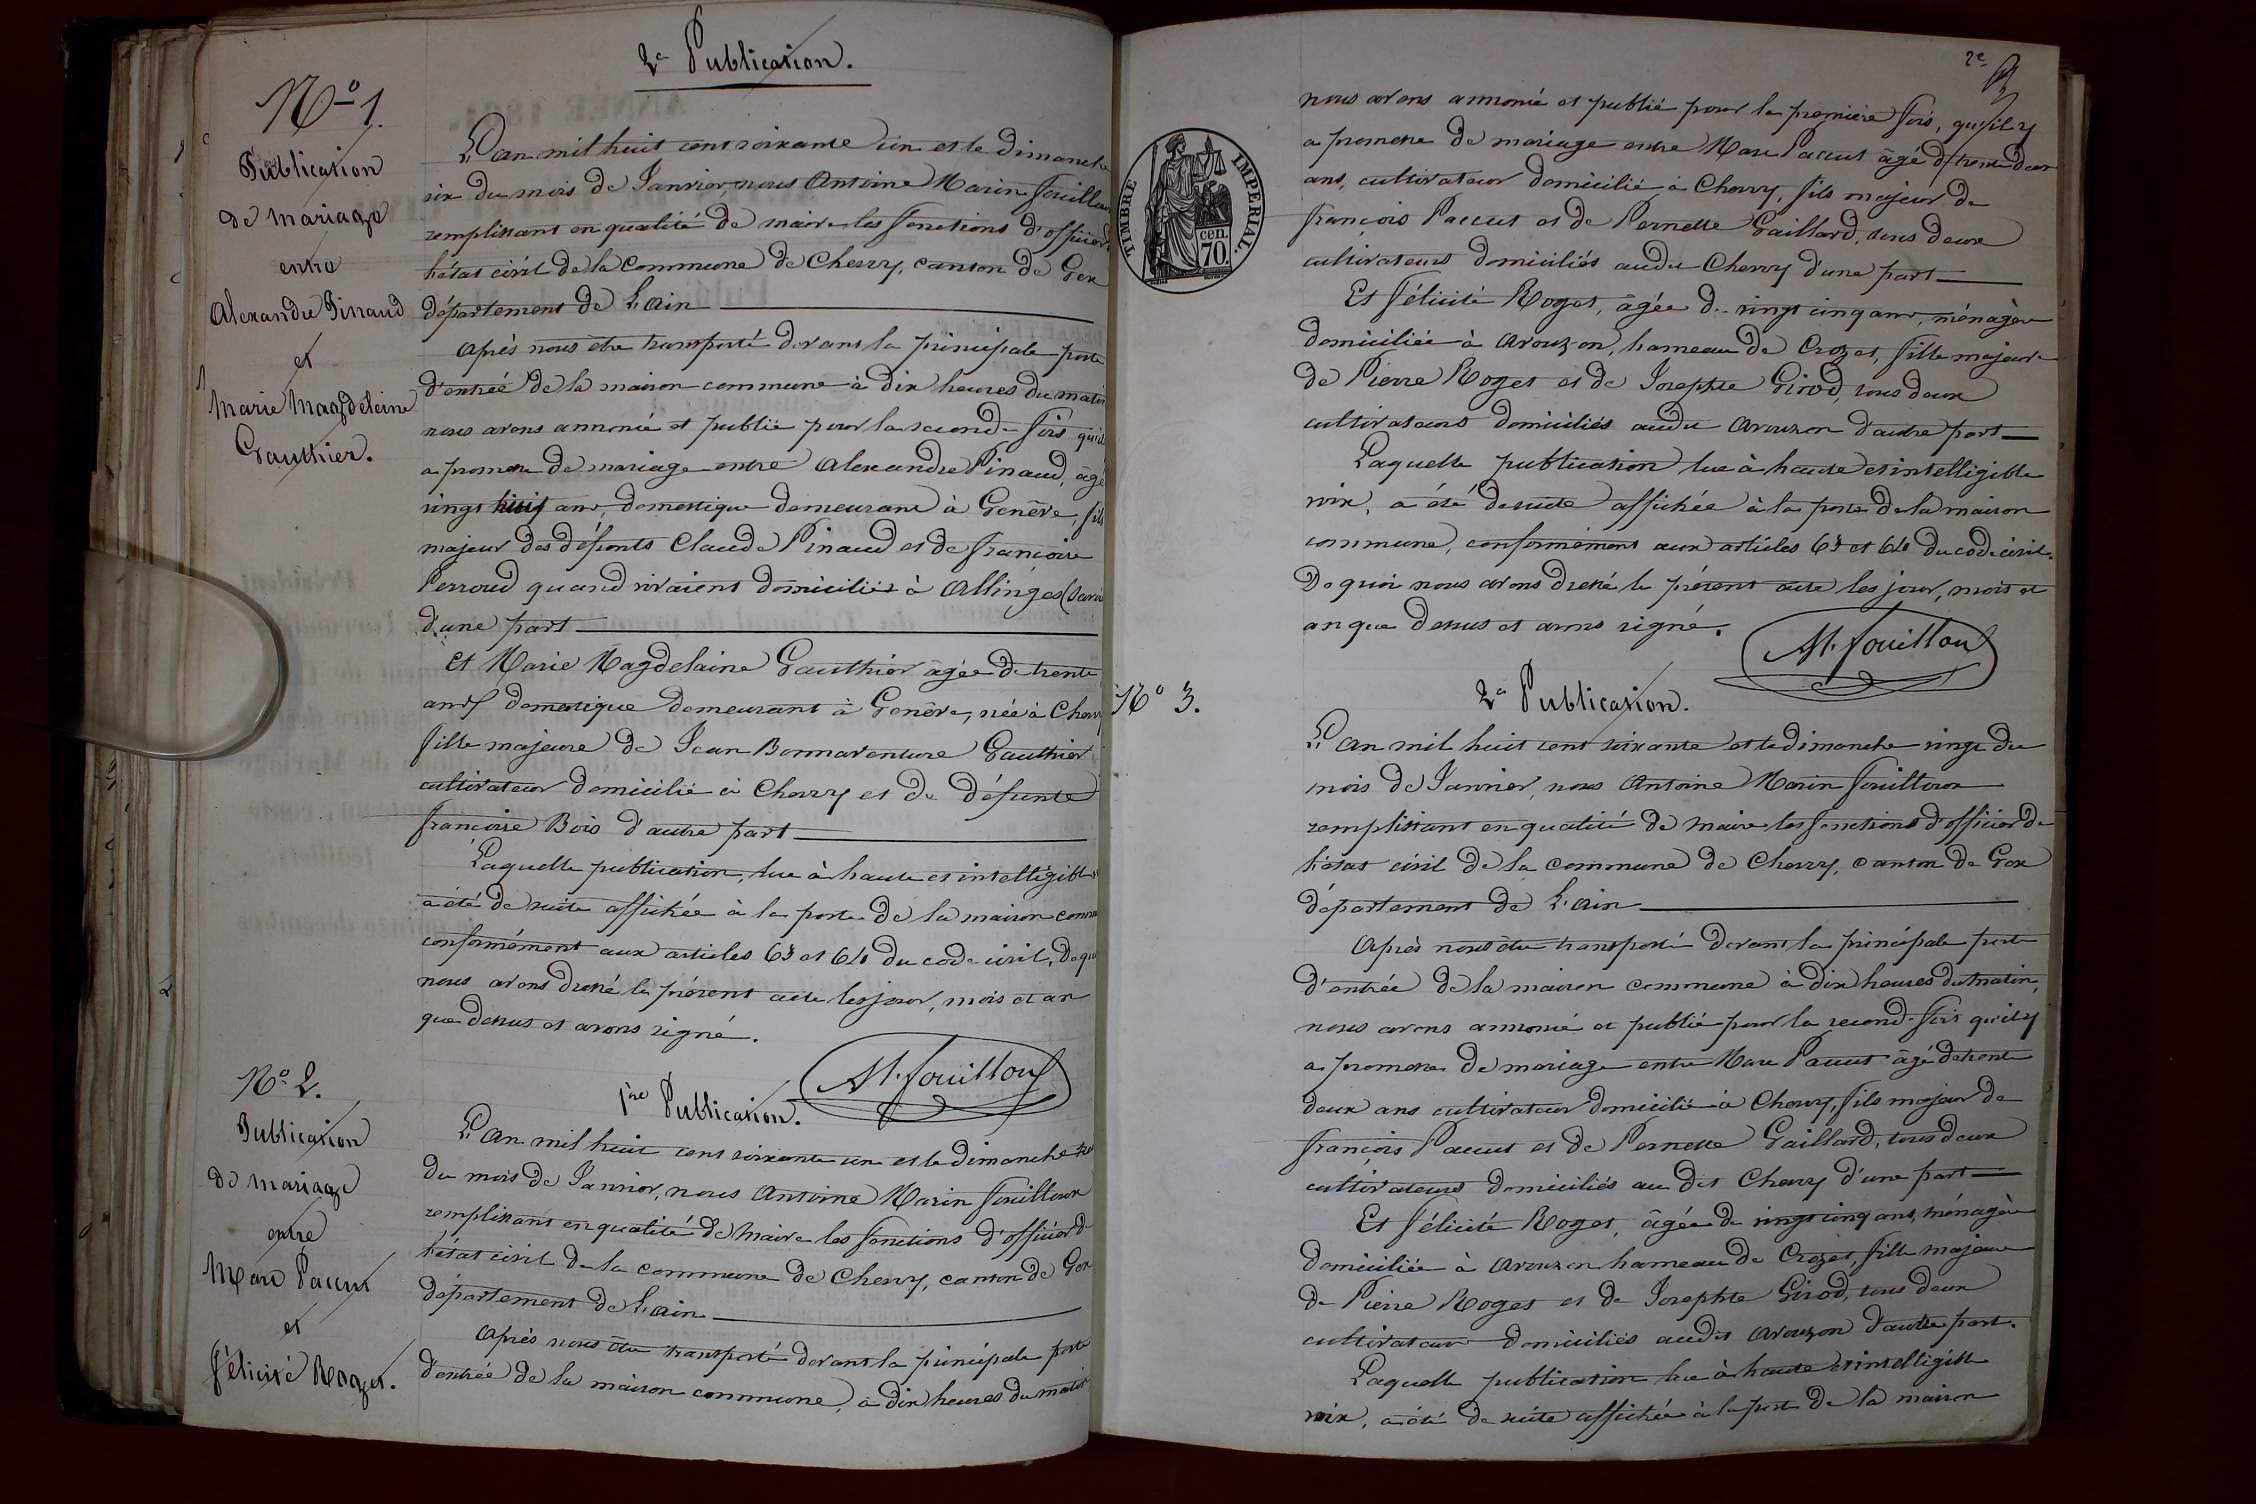 2e Publication.
No 1.
Publication
de mariage
entre
Alexandre Pinaud
et
Marie Magdeleine
Gauthier.
L'an mil huit cent soixante un et le dimanche
six du mois de Janvier, nous Antoine Marin Fouilloux
remplissant en qualité de maire les fonctions d'officier
l'état civil de la Commune de Chevry, canton de Gex
département de L'ain
Après nous être transporté devant la principale porte
d'entrée de la maison commune à dix heures du matin
nous avons annoncé et publié pour la seconde fois qu'il
a promesse de mariage entre Alexandre Pinaud, âgé
vingt huit ans, domestique demeurant à Genève, fils
majeur des défunts Claude Pinaud et de françoise
Perroud quand vivaient domiciliés à Allinges (Savoie
d'une part
Et Marie Magdelaine Gauthier âgée de trente
ans domestique demeurant à Genève, née à Chevry
fille majeure de Jean Bonnaventure Gauthier
cultivateur domicilié à Chevry et de défunte
françoise Bois d'autre part
Laquelle publication, lue à haute et intelligible
a été de suite affichée à la porte de la maison comm
conformément aux articles 63 et 64 du code civil, De quoi
nous avons dressé le présent acte les jour, mois et an
que dessus et avons signé.
AM. fouilloux
No 2.
Publication
de mariage
entre
Marc Paccut
et
félicité Roget.
1ere Publication.
L'an mil huit cent soixante un et le dimanche
du mois de Janvier, nous Antoine Marin Fouilloux
remplissant en qualité de maire les fonctions d'officier d
l'état civil de la commune de Chevry, canton de Gex
département de L'ain
Après nous être transporté devant la principale porte
d'entrée de la maison commune, à dix heures du matin
2e
nous avons annoncé et publié pour la première fois, qu'il y
a promesse de mariage entre Marc Paccut âgé de trente deux
ans, cultivateur domicilié à Chevry, fils majeur de
françois Paccut et de Pernette Gaillard, tous deux
cultivateurs domiciliés audit Chevry d'une part
Et félicité Roget, âgée de vingt cinq ans, ménagère
domiciliée à Avouzon, hameau de Crozet, fille majeure
de Pierre Roget et de Josephte Girod, tous deux
cultivateurs domiciliés audit Avouzon d'autre part
Laquelle publication lue à haute et intelligible
voix, a été de suite affichée à la porte de la maison
commune, conformément aux articles 63 et 64 du code civil.
De quoi nous avons dressé le présent acte les jour, mois et
an que dessus et avons signé.
AM. fouilloux
TIMBRE IMPERIAL.
70 cen.
No 3.
2e Publication.
L'an mil huit cent soixante et le dimanche vingt du
mois de Janvier, nous Antoine Marin Fouilloux
remplissant en qualité de maire les fonctions d'officier de
l'état civil de la commune de Chevry, canton de Gex
département de L'ain
Après nous être transporté devant la principale porte
d'entrée de la maison commune à dix heures du matin,
nous avons annoncé et publié pour la seconde fois qu'il y
a promesse de mariage entre Marc Paccut âgé de trente
deux ans cultivateur domicilié à Chevry, fils majeur de
françois Paccut et de Pernette Gaillard, tous deux
cultivateurs domiciliés au dit Chevry d'une part
Et félicité Roget, âgée de vingt cinq ans, ménagère
domiciliée à Avouzon hameau de Crozet, fille majeure
de Pierre Roget et de Josephte Girod, tous deux
cultivateurs domiciliés audit Avouzon d'autre part.
Laquelle publication lue à haute et intelligible
voix, a été de suite affichée à la porte de la maison